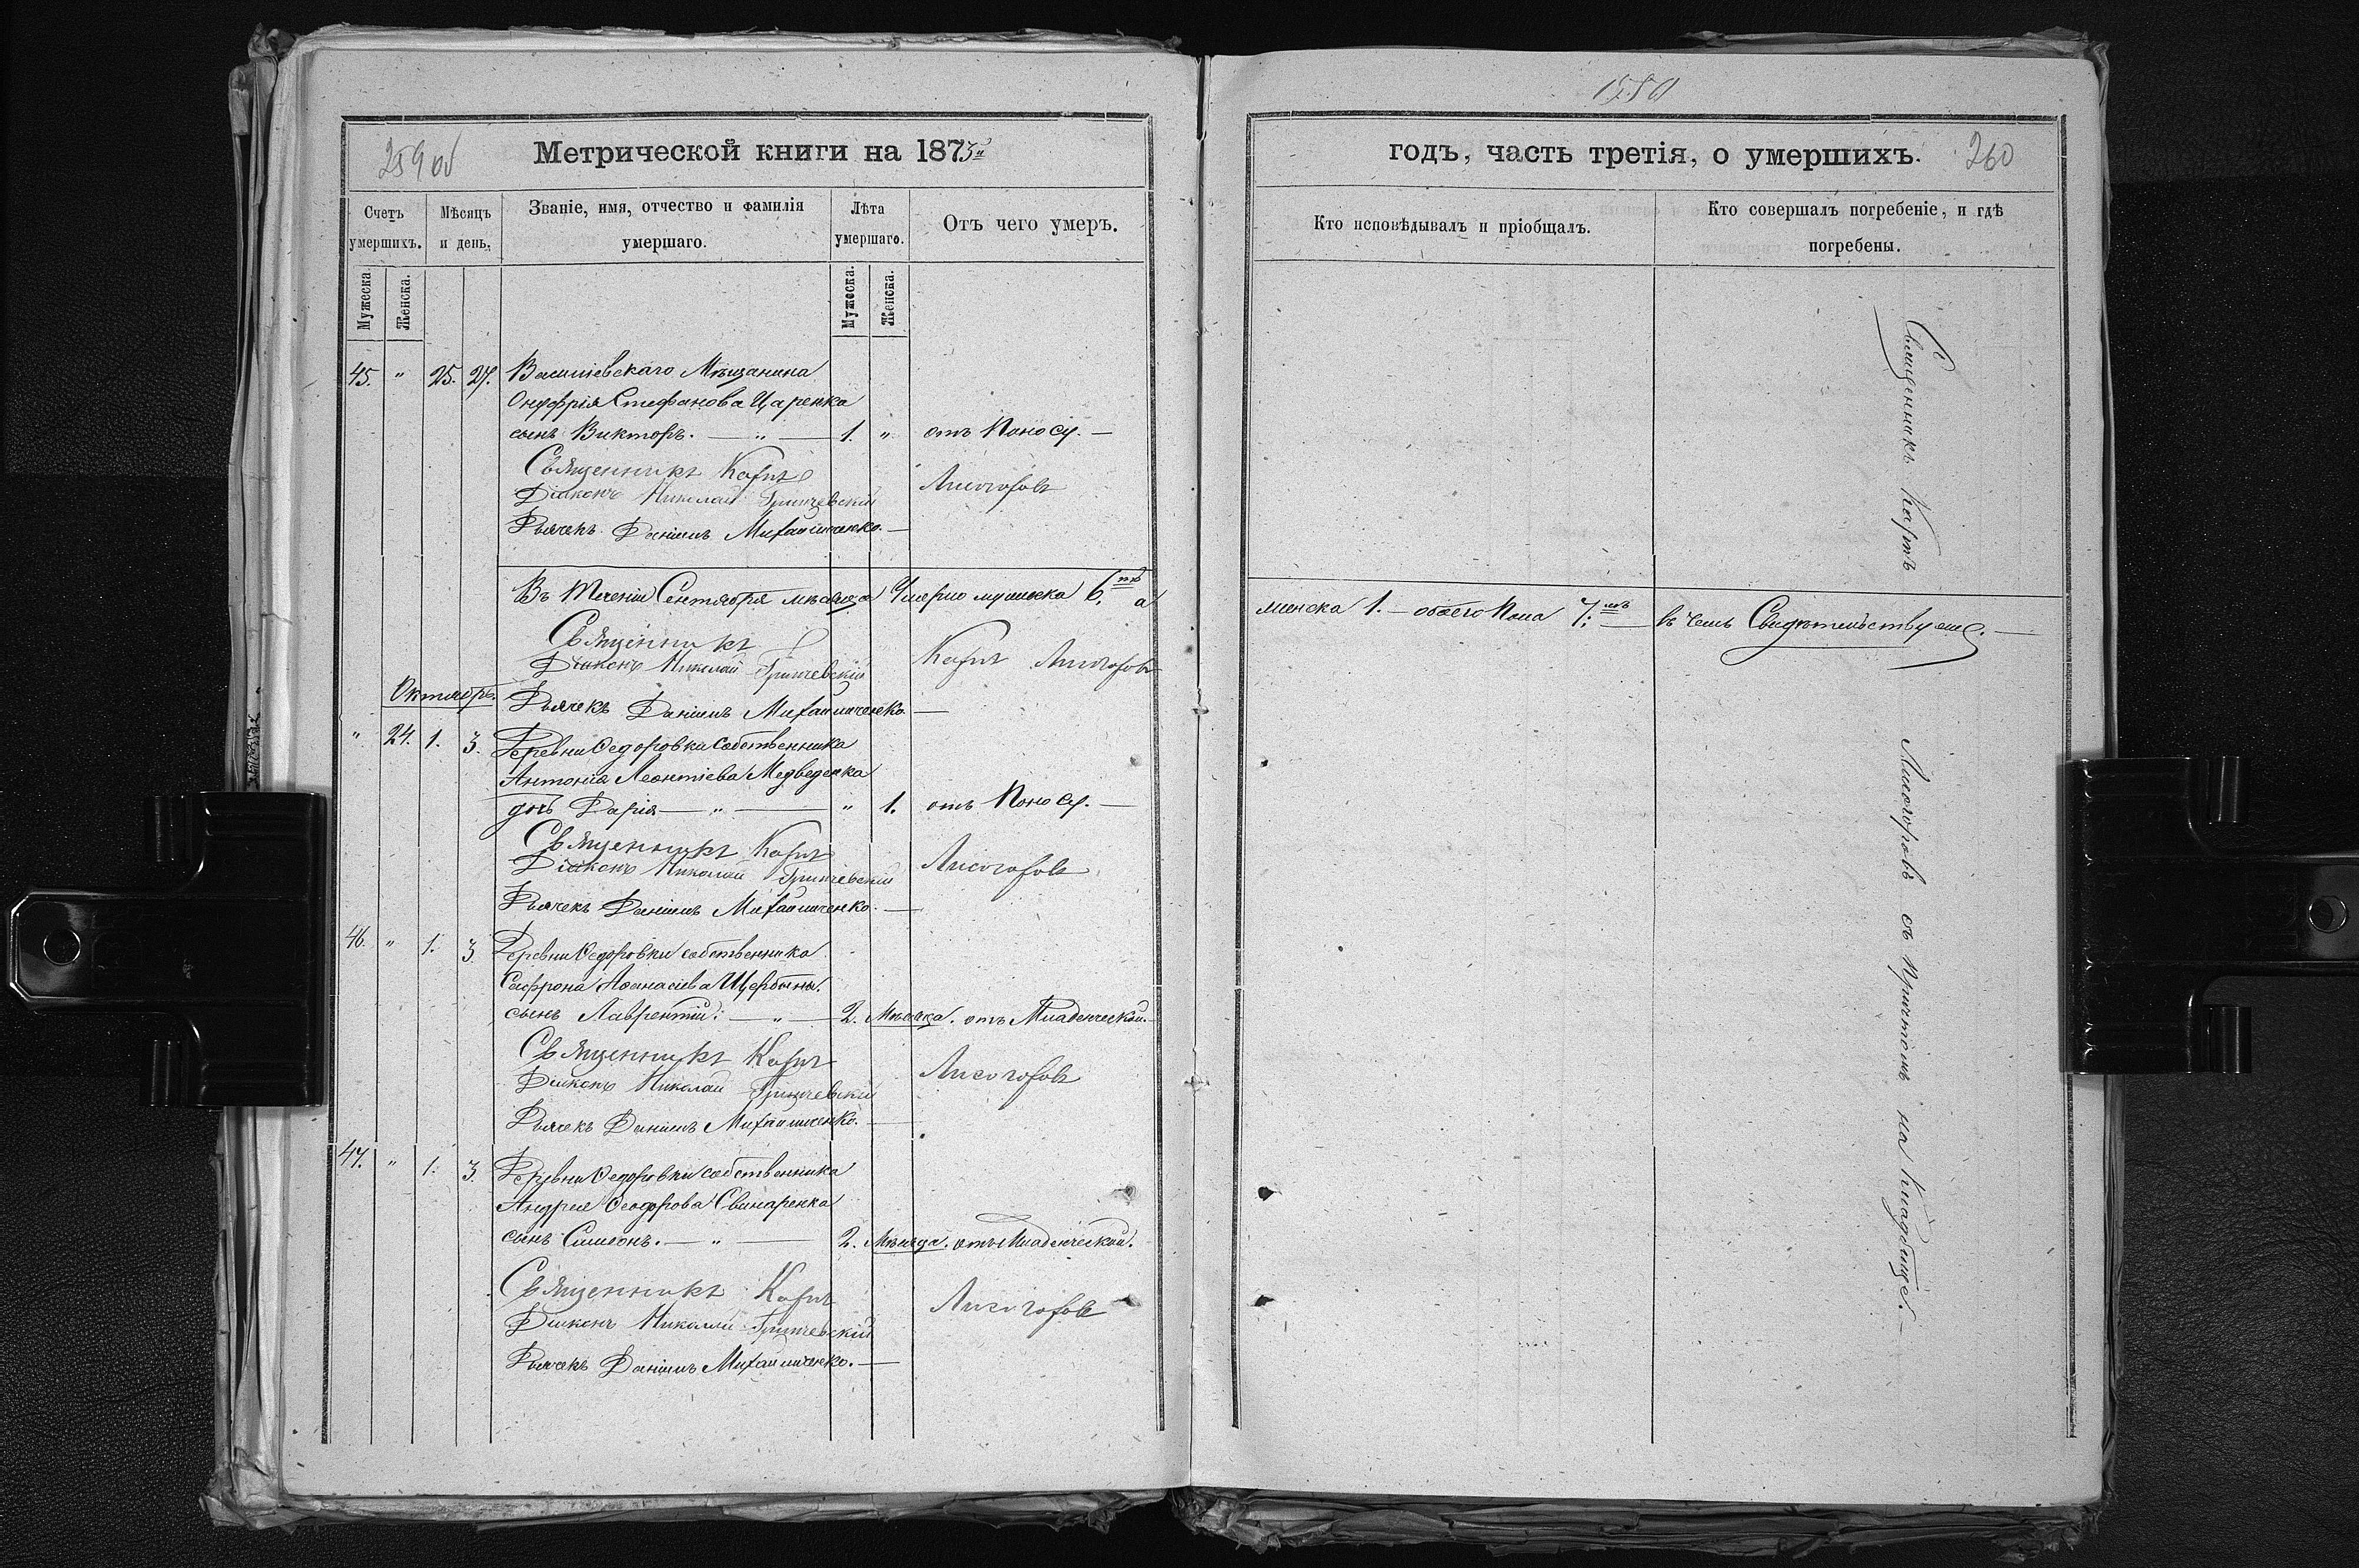 259 об
Метрической книги на 1873й
Счетъ умершихъ.
Мѣсяцъ и день.
Званіе, имя, отчество и фамилія умершаго.
Лѣта умершаго.
Отъ чего умеръ.
Мужеска.
Женска.
Мужеска.
Женска.
45. " 25. 27. Василіевскаго Мѣщанина
Онуфрія Стефанова Царенка
сынъ Викторъ. — " — 1. " отъ Поносу. —
Священникъ Карпъ Лисогоровъ
Діаконъ Николай Гринчевскій
Дьячекъ Даніилъ Михайличенко. —
Въ теченіи Сентября мѣсяца Умерло мужеска 6. а
Священникъ Карпъ Лисогоровъ
Діаконъ Николай Гринчевскій
Октябрь.
Дьячекъ Даніилъ Михайличенко. —
" 24. 1. 3. Деревни Федоровки собственника
Антонія Леонтіева Медведенка
дочь Дарія — " — " 1. отъ Поносу. —
Священникъ Карпъ Лисогоровъ
Діаконъ Николай Гринчевскій
Дьячекъ Даніилъ Михайличенко. —
46. " 1. 3. Деревни Федоровки собственника
Софрона Аѳанасіева Щербины.
сынъ Лаврентій: — " — 2. Мѣсяца. отъ Младенческой. —
Священникъ Карпъ Лисогоровъ
Діаконъ Николай Гринчевскій
Дьячекъ Даніилъ Михайличенко. —
47. " 1. 3. Деревни Федоровки собственника
Андрея Ѳеодорова Свинаренка
сынъ Симеонъ. — " — 2. Мѣсяца. отъ Младенческой.
Священникъ Карпъ Лисогоровъ
Діаконъ Николай Гринчевскій
Дьячекъ Даніилъ Михайличенко. —
годъ, часть третія, о умершихъ. 260
Кто исповѣдывалъ и пріобщалъ.
Кто совершалъ погребеніе, и гдѣ погребены.
женска 1. — обоего Пола 7. — въ чемъ Свидѣтельствуемъ. —
Священникъ Карпъ Лисогоровъ съ причтомъ на кладбищѣ. —